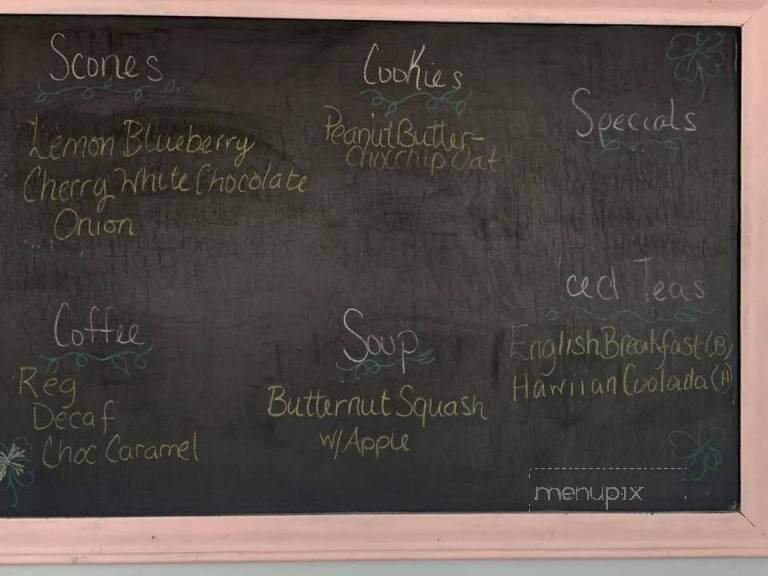 Scones
Lemon Blueberry
Cherry White Chocolate
Onion
Cookies
Peanut Butter-
Chocchip Oat
Specials
Coffee
Reg
Decaf
Choc Caramel
Soup
Butternut Squash
w/ Apple
Iced Teas
English Breakfast (B)
Hawiian Coolada (H)
menupix